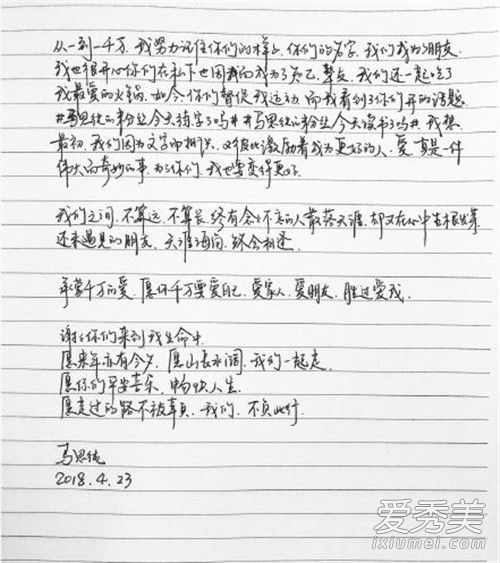 从一到一千万,我努力记住你们的样子,你们的名字,我们成为朋友,
我也很开心你们在私下也因我而成为了知己,挚友,我们还一起吃了
我最爱的火锅,如今,你们督促我运动,而我看到了你们开的话题
#马思纯的粉丝今天练字了吗##马思纯的粉丝今天读书了吗#,我想
最初,我们因为文字而相识,又彼此激励着成为更好的人,爱,真是一件
伟大而奇妙的事,为了你们,我也要变得更好.
我们之间,不算远,不算长,终有会 不 的人散落天涯,却又在心中吉
还未遇见的朋友,天涯海阔,终会相逢.
承蒙千万的爱,愿你千万要爱自己,爱家人,爱朋友,胜过爱我.
谢谢你们来到我生命中.
愿来年亦有今夕,愿山长水阔,我们一起走.
愿你们平安喜乐, 快人生.
愿走过的路不被辜负,我们,不负此行.
马思纯
2018.4.23
爱秀美
ixiumei.com